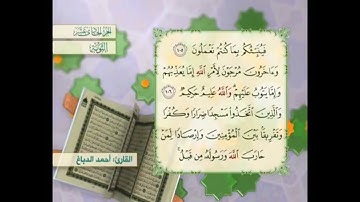 الجزء الحادي عشر
التوبة
فَيُنَبِّئُكُم بِمَا كُنتُمْ تَعْمَلُونَ ١٠٥
وَءَاخَرُونَ مُرْجَوْنَ لِأَمْرِ ٱللَّهِ إِمَّا يُعَذِّبُهُمْ
وَإِمَّا يَتُوبُ عَلَيْهِمْ وَٱللَّهُ عَلِيمٌ حَكِيمٌ ١٠٦
وَٱلَّذِينَ ٱتَّخَذُوا۟ مَسْجِدًا ضِرَارًا وَكُفْرًا
وَتَفْرِيقًۢا بَيْنَ ٱلْمُؤْمِنِينَ وَإِرْصَادًا لِّمَنْ
حَارَبَ ٱللَّهَ وَرَسُولَهُۥ مِن قَبْلُ
القارئ: أحمد الدباغ